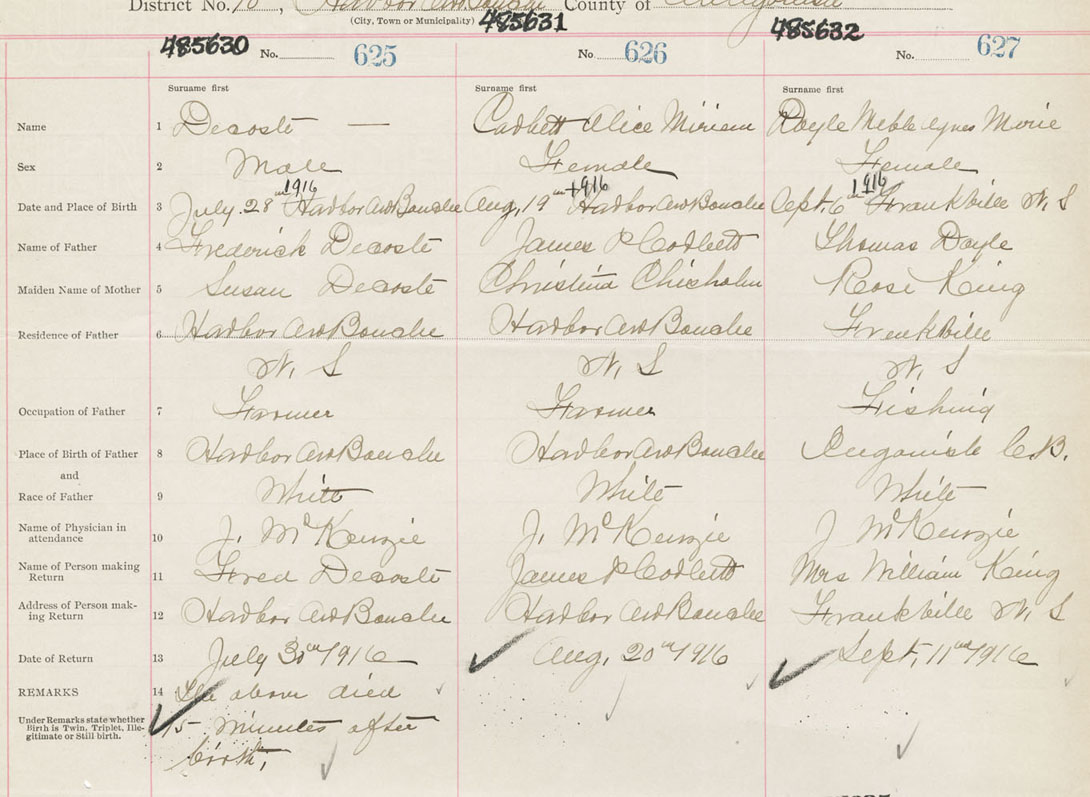 District No. 10, Harbor Au Bouche County of Antigonish
(City, Town or Municipality)
485630 485631 485632
No. 625 No. 626 No. 627
Surname first Surname first Surname first
Name 1 Decoste — Corbett Alice Miriam Doyle Meble Agnes Morie
Sex 2 Male Female Female
Date and Place of Birth 3 July 28th 1916 Harbor Au Bouche Aug, 19th 1916 Harbor Au Bouche Sept. 6th 1916 Frankville N. S
Name of Father 4 Frederick Decoste James P Corbett Thomas Doyle
Maiden Name of Mother 5 Susan Decoste Christina Chisholm Rose King
Residence of Father 6 Harbor Au Bouche Harbor Au Bouche Frankville
N. S N. S N. S
Occupation of Father 7 Farmer Farmer Fishing
Place of Birth of Father 8 Harbor Au Bouche Harbor Au Bouche Inganish C. B.
and
Race of Father 9 White White White
Name of Physician in
attendance 10 J. McKenzie J. McKenzie J McKenzie
Name of Person making
Return 11 Fred Decoste James P Corbett Mrs William King
Address of Person mak-
ing Return 12 Harbor Au Bouche Harbor Au Bouche Frankville N. S
Date of Return 13 July 30th 1916 Aug, 20th 1916 Sept, 11th 1916
REMARKS 14 The above died
Under Remarks state whether
Birth is Twin, Triplet, Ille-
gitimate or Still birth.
15 minutes after
birth,